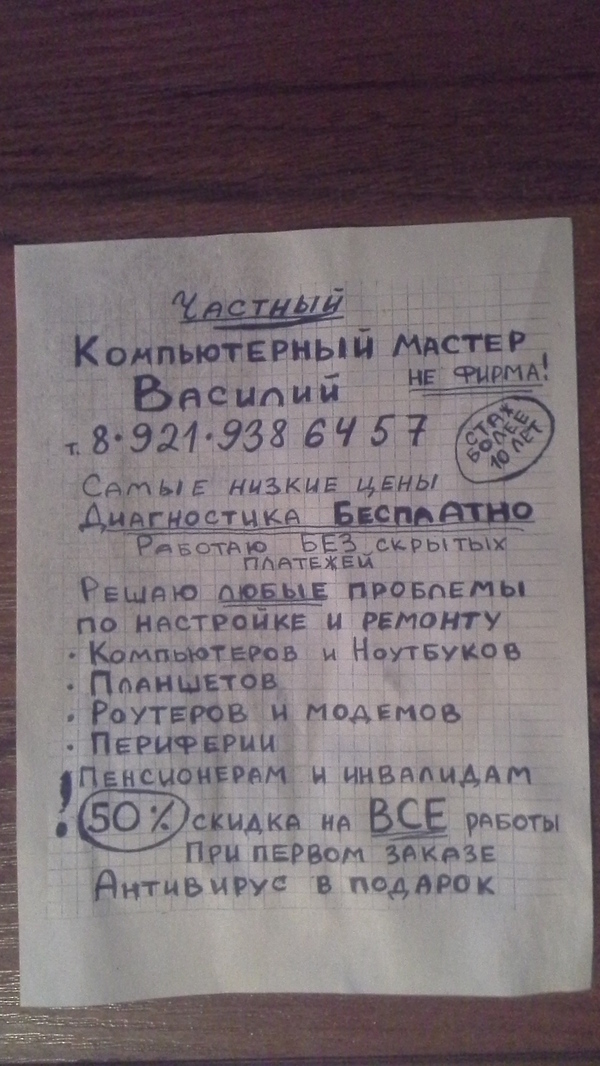 Частный
Компьютерный мастер
Василий не фирма!
т. 8·921·938 64 57
стаж
более
10 лет
Самые низкие цены
Диагностика бесплатно
Работаю без скрытых
платежей
Решаю любые проблемы
по настройке и ремонту
· Компьютеров и Ноутбуков
· Планшетов
· Роутеров и модемов
· Периферии
! Пенсионерам и инвалидам
50% скидка на ВСЕ работы
При первом заказе
Антивирус в подарок